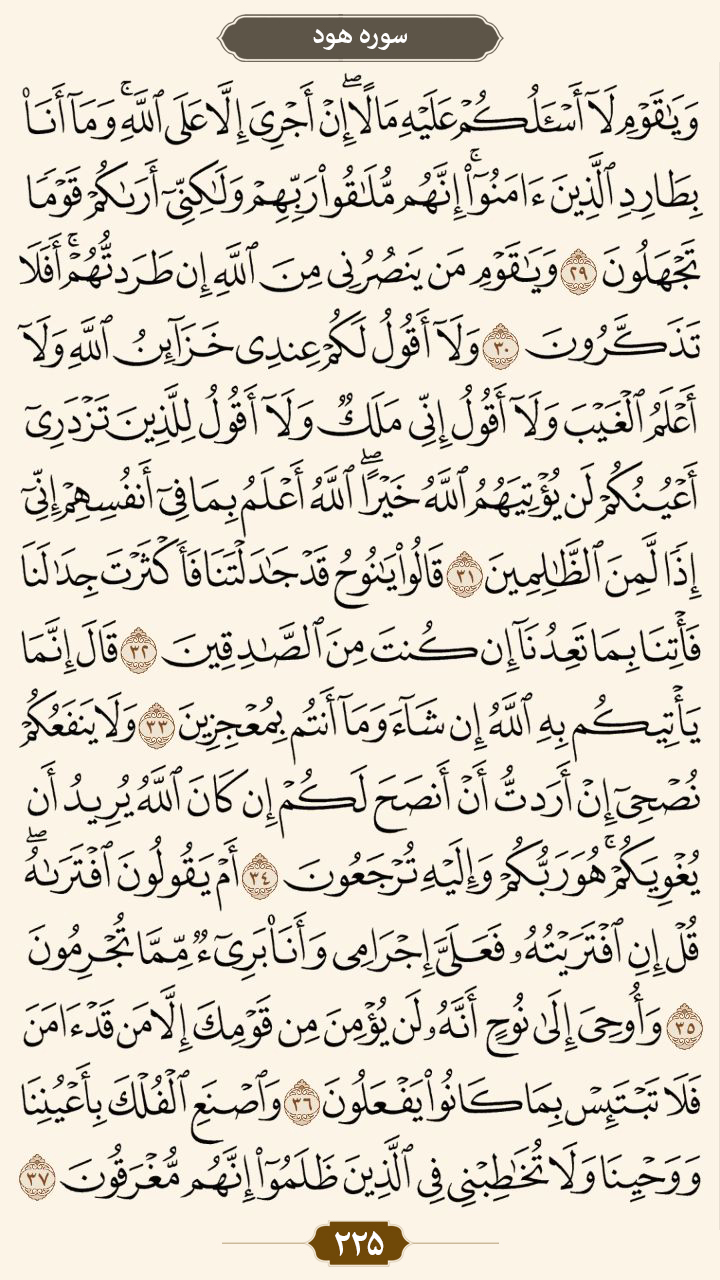 سوره هود
وَيَٰقَوْمِ لَآ أَسْـَٔلُكُمْ عَلَيْهِ مَالًا ۖ إِنْ أَجْرِىَ إِلَّا عَلَى ٱللَّهِ ۚ وَمَآ أَنَا۠
بِطَارِدِ ٱلَّذِينَ ءَامَنُوٓا۟ ۚ إِنَّهُم مُّلَٰقُوا۟ رَبِّهِمْ وَلَٰكِنِّىٓ أَرَىٰكُمْ قَوْمًا
تَجْهَلُونَ ٢٩ وَيَٰقَوْمِ مَن يَنصُرُنِى مِنَ ٱللَّهِ إِن طَرَدتُّهُمْ ۚ أَفَلَا
تَذَكَّرُونَ ٣٠ وَلَآ أَقُولُ لَكُمْ عِندِى خَزَآئِنُ ٱللَّهِ وَلَآ
أَعْلَمُ ٱلْغَيْبَ وَلَآ أَقُولُ إِنِّى مَلَكٌ وَلَآ أَقُولُ لِلَّذِينَ تَزْدَرِىٓ
أَعْيُنُكُمْ لَن يُؤْتِيَهُمُ ٱللَّهُ خَيْرًا ۖ ٱللَّهُ أَعْلَمُ بِمَا فِىٓ أَنفُسِهِمْ إِنِّىٓ
إِذًا لَّمِنَ ٱلظَّٰلِمِينَ ٣١ قَالُوا۟ يَٰنُوحُ قَدْ جَٰدَلْتَنَا فَأَكْثَرْتَ جِدَٰلَنَا
فَأْتِنَا بِمَا تَعِدُنَآ إِن كُنتَ مِنَ ٱلصَّٰدِقِينَ ٣٢ قَالَ إِنَّمَا
يَأْتِيكُم بِهِ ٱللَّهُ إِن شَآءَ وَمَآ أَنتُم بِمُعْجِزِينَ ٣٣ وَلَا يَنفَعُكُمْ
نُصْحِىٓ إِنْ أَرَدتُّ أَنْ أَنصَحَ لَكُمْ إِن كَانَ ٱللَّهُ يُرِيدُ أَن
يُغْوِيَكُمْ ۚ هُوَ رَبُّكُمْ وَإِلَيْهِ تُرْجَعُونَ ٣٤ أَمْ يَقُولُونَ ٱفْتَرَىٰهُ ۖ
قُلْ إِنِ ٱفْتَرَيْتُهُۥ فَعَلَىَّ إِجْرَامِى وَأَنَا۠ بَرِىٓءٌ مِّمَّا تُجْرِمُونَ
٣٥ وَأُوحِىَ إِلَىٰ نُوحٍ أَنَّهُۥ لَن يُؤْمِنَ مِن قَوْمِكَ إِلَّا مَن قَدْ ءَامَنَ
فَلَا تَبْتَئِسْ بِمَا كَانُوا۟ يَفْعَلُونَ ٣٦ وَٱصْنَعِ ٱلْفُلْكَ بِأَعْيُنِنَا
وَوَحْيِنَا وَلَا تُخَٰطِبْنِى فِى ٱلَّذِينَ ظَلَمُوٓا۟ إِنَّهُم مُّغْرَقُونَ ٣٧
۲۲۵